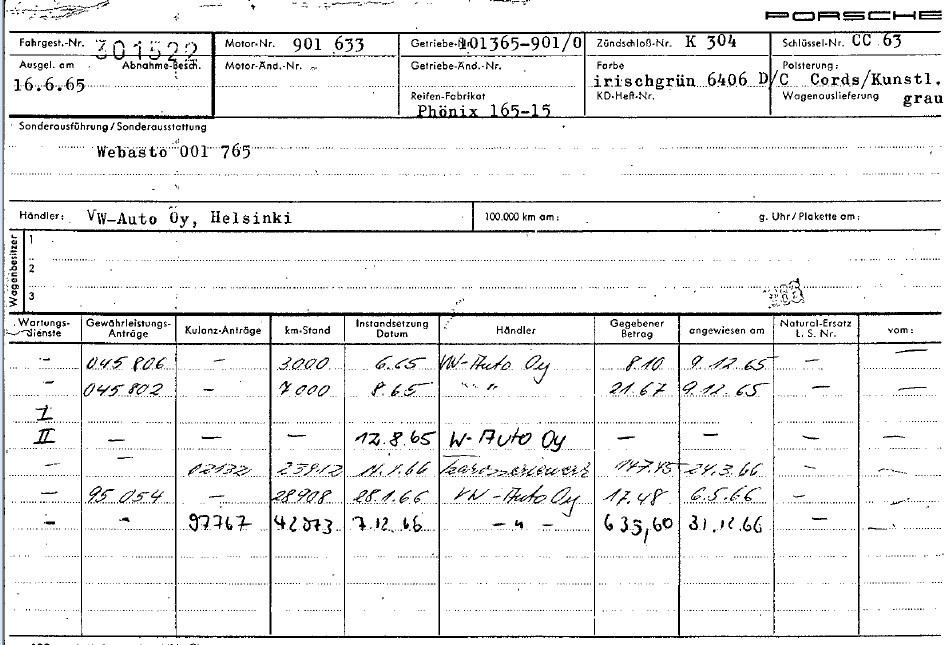 PORSCHE
Fahrgest.-Nr. 301522 Motor-Nr. 901 633 Getriebe-Nr. 101365-901/0 Zündschloß-Nr. K 304 Schlüssel-Nr. CC 63
Ausgel. am Abnahme-Besch. Motor-Änd.-Nr. – Getriebe-Änd.-Nr. Farbe Polsterung:
16.6.65 irischgrün 6406 D/C Cords/Kunstl.
Reifen-Fabrikat KD-Heft-Nr. Wagenauslieferung grau
Phönix 165-15
Sonderausführung/Sonderausstattung
Webasto 001 765
Händler: VW-Auto Oy, Helsinki 100.000 km am: g. Uhr/Plakette am:
Wagenbesitzer
1
2
3
Wartungs-dienste Gewährleistungs-Anträge Kulanz-Anträge km-Stand Instandsetzung Datum Händler Gegebener Betrag angewiesen am Natural-Ersatz L. S. Nr. vom:
– 045 806 – 3000 6.65 VW-Auto Oy 8.10 9.12.65 – –
– 045 802 – 7000 8.65 " " 21.67 9.12.65 – –
I
II – – – 12.8.65 VW-Auto Oy – – – –
– – 02132 23912 11.1.66 147.45 24.3.66 – –
– 95 054 – 28908 28.1.66 VW-Auto Oy 17.48 6.5.66 – –
– - 97767 42073 7.12.66 – " – 635,60 31.12.66 – –